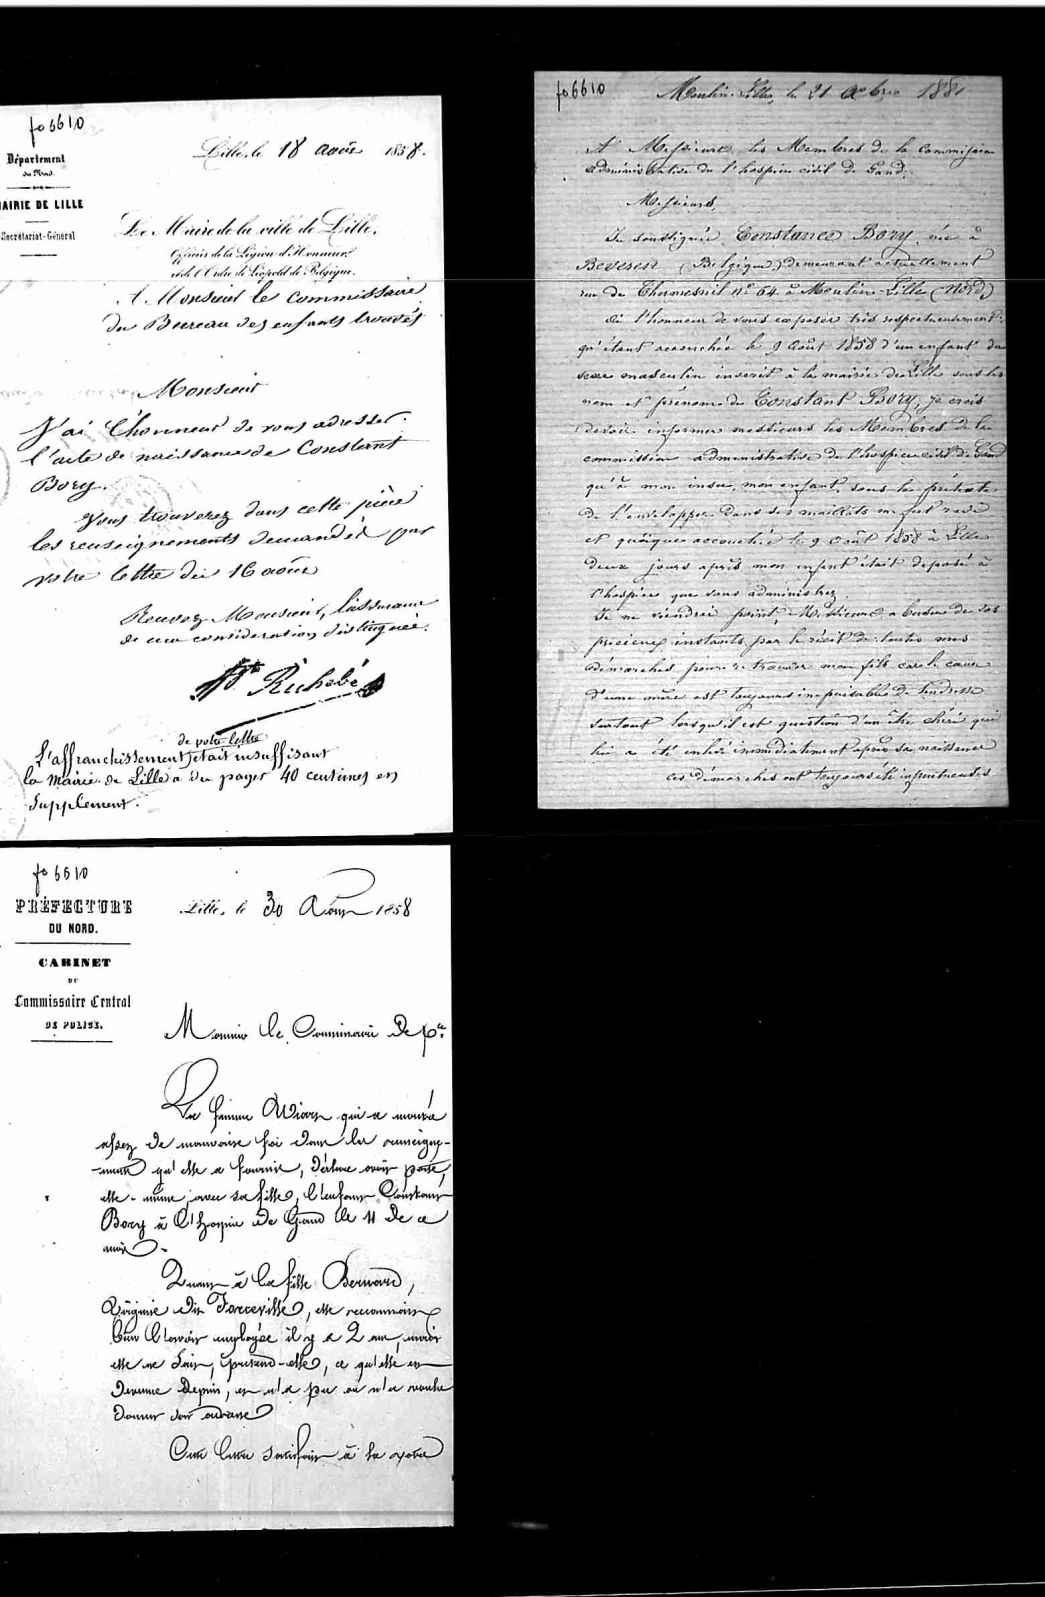 fo 6610
Département
du Nord.
MAIRIE DE LILLE
Secrétariat-Général
Lille, le 18 août 1858.
Le Maire de la ville de Lille,
Officier de la Légion d'Honneur,
et de l'Ordre de Léopold de Belgique.
A Monsieur le commissaire
du Bureau des enfants trouvés
Monsieur
J'ai l'honneur de vous adresser
l'acte de naissance de Constant
Bory.
Vous trouverez dans cette pièce
les renseignements demandés par
votre lettre du 16 août
Recevez, Monsieur, l'assurance
de ma considération distinguée.
Richebé
de votre lettre
L'affranchissement était insuffisant
la Mairie de Lille a du payer 40 centimes en
supplement.
fo 6610
Moulin-Lille, le 21 1881
A Messieurs les Membres de la commission
administrative de l'hospice civil de Gand.
Messieurs,
Je soussignée Constance Bory, née à
Beveren (Belgique) demeurant actuellement
rue de Thumesnil n° 64 à Moulin-Lille (Nord)
ai l'honneur de vous exposer très respectueusement
qu'étant accouchée le 9 août 1858 d'un enfant du
sexe masculin inscrit à la mairie de Lille sous les
nom et prénom de Constant Bory, je crois
devoir informer messieurs les Membres de la
commission administrative de l'hospice civil de Gand
qu'à mon insu, mon enfant, sous le prétexte
de l'envelopper dans ses maillots me fut ravi
et quoique accouchée le 9 août 1858 à Lille
deux jours après mon enfant était déposé à
l'hospice que vous administrez.
Je ne viendrai point, Messieurs, abuser de vos
précieux instants par le récit de toutes mes
démarches pour retrouver mon fils car le cœur
d'une mère est toujours inépuisable de tendresse
surtout lorsqu'il est question d'un être chéri qui
lui a été enlevé immédiatement après sa naissance
ces démarches ont toujours été infructueuses
fo 6610
PRÉFECTURE
DU NORD.
CABINET
DU
Commissaire Central
DE POLICE.
Lille, le 30 Août 1858
Monsieur le Commissaire de pce
La femme Wiart qui a montré
assez de mauvaise foi dans les renseigne-
-ments qu'elle a fournis, déclare avoir porté,
elle-même avec sa fille, l'enfant Constant
Bory à l'hospice de Gand le 11 de ce
mois.
Quant à la fille Bernard,
Virginie dite Forceville, elle reconnaît
bien l'avoir employée il y a 2 ans, mais
elle ne sait, prétend-elle, ce qu'elle est
devenue depuis, et n'a pu ou n'a voulu
donner son adresse
Cette lettre satisfait à la votre